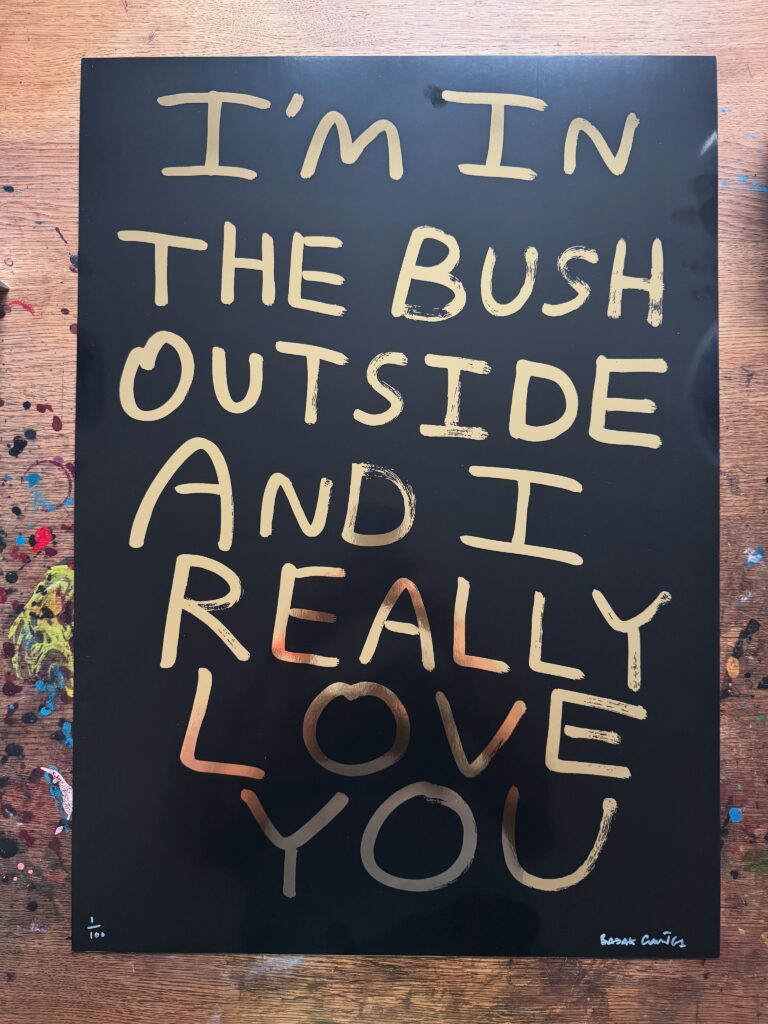 I'M IN
THE BUSH
OUTSIDE
AND I
REALLY
LOVE
YOU
1/100
BABAK GANJEI